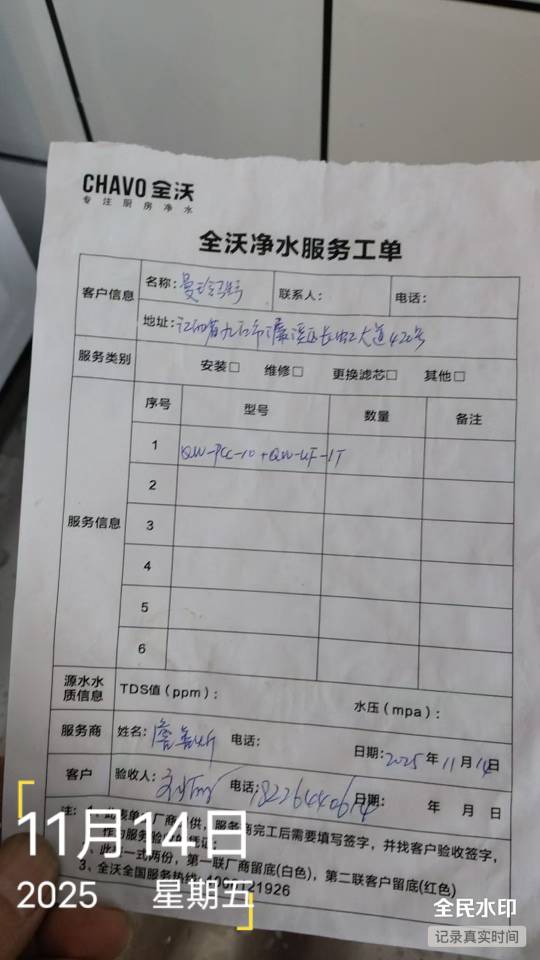 CHAVO 全沃
专注厨房净水
全沃净水服务工单
客户信息
名称：曼玲粥
联系人：
电话：
地址：江西省九江市濂溪区长虹大道420号
服务类别
安装□ 维修□ 更换滤芯□ 其他□
服务信息
序号 型号 数量 备注
1 QW-PCC-10+QW-UF-1T
2
3
4
5
6
源水水质信息
TDS值（ppm）：
水压（mpa）：
服务商
姓名：
电话：
日期：2025年11月14日
客户
验收人：
电话：18226440614
日期： 年 月 日
注：1、此 单 厂商 供，服务商完工后需要填写签字，并找客户验收签字，
作为服务验 凭证；
此 一式两份，第一联厂商留底(白色)，第二联客户留底(红色)
3、全沃全国服务热线：4001121926
11月14日
2025 星期五
全民水印
记录真实时间